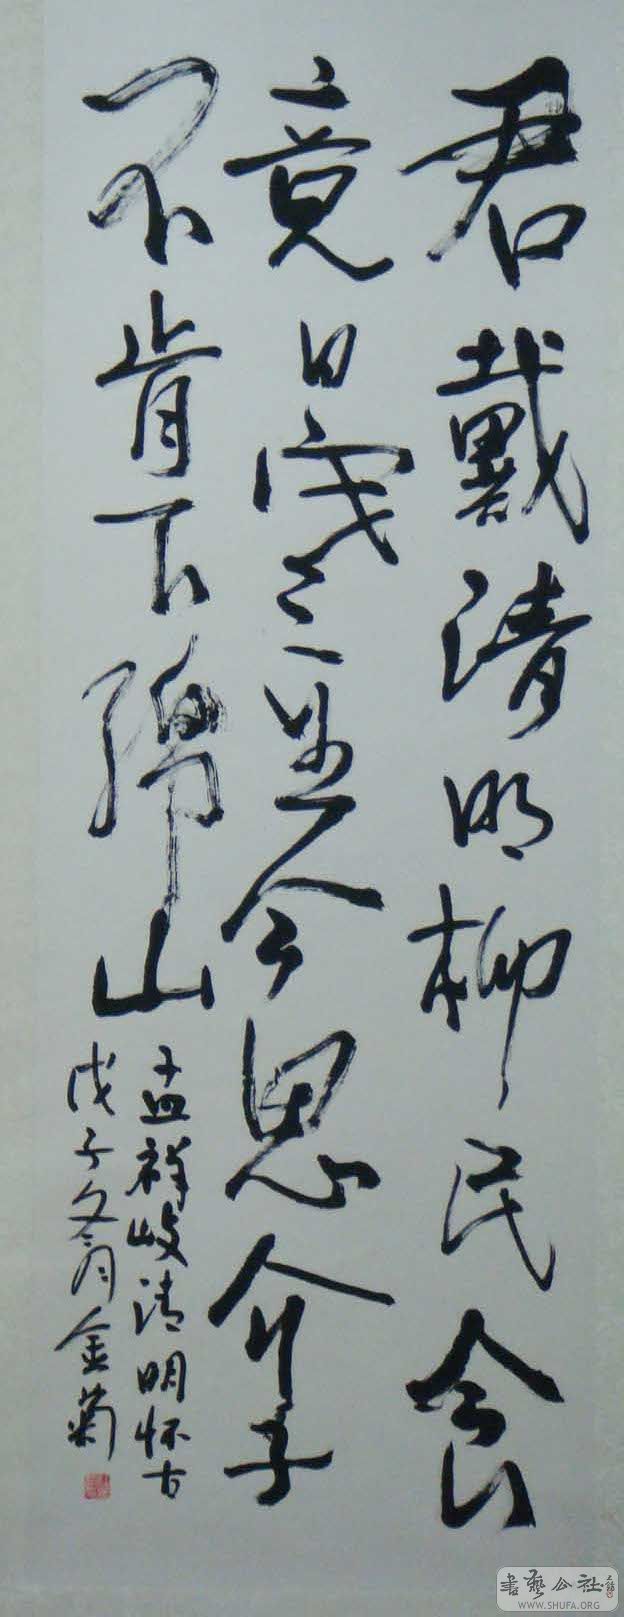 君戴清明柳民食
竟日寒至今思介子
不肯下绵山
孟祥岐清明怀古
戊子冬月金菊
书艺公社
WWW.SHUFA.ORG